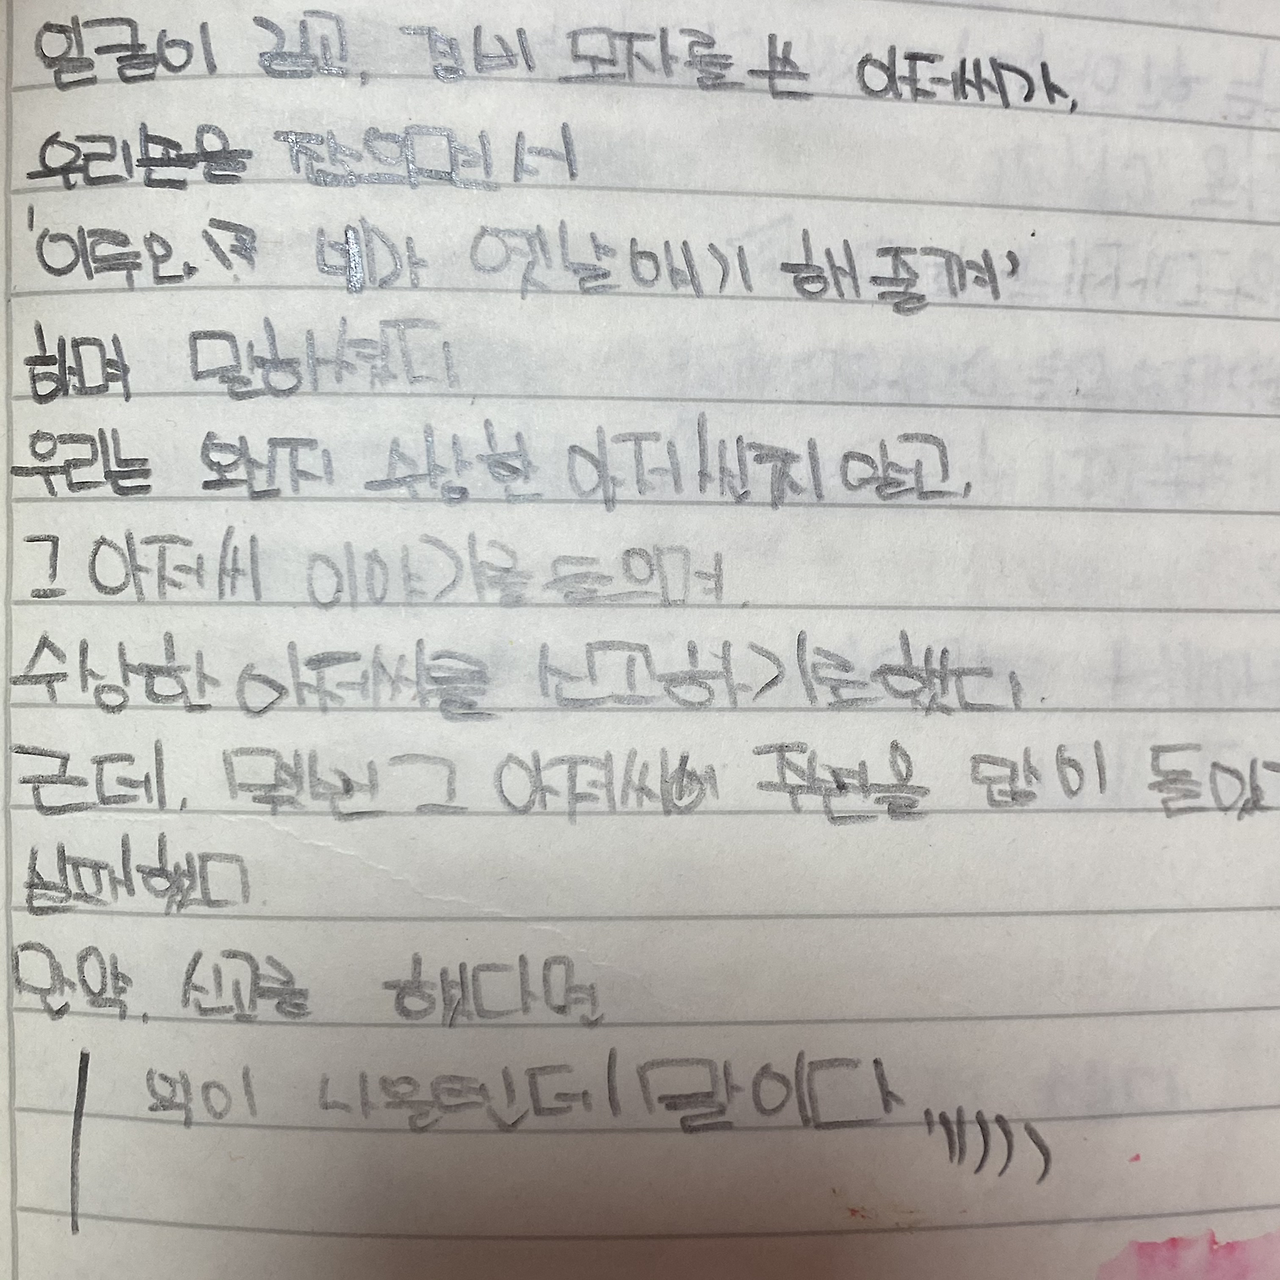 얼굴이 검고, 경비 모자를 쓴 아저씨가,
우리손을 잡으면서
'이루오, 내가 옛날얘기 해줄게'
하며 말하셨다
우리는 왠지 수상한 아저씬지 알고,
그 아저씨 이야기를 들으며
수상한 아저씨를 신고하기로했다.
근데, 그 아저씨에 주변을 많이 돌았
실패했다.
만약, 신고를 했다면
벅이 나올텐데 말이다